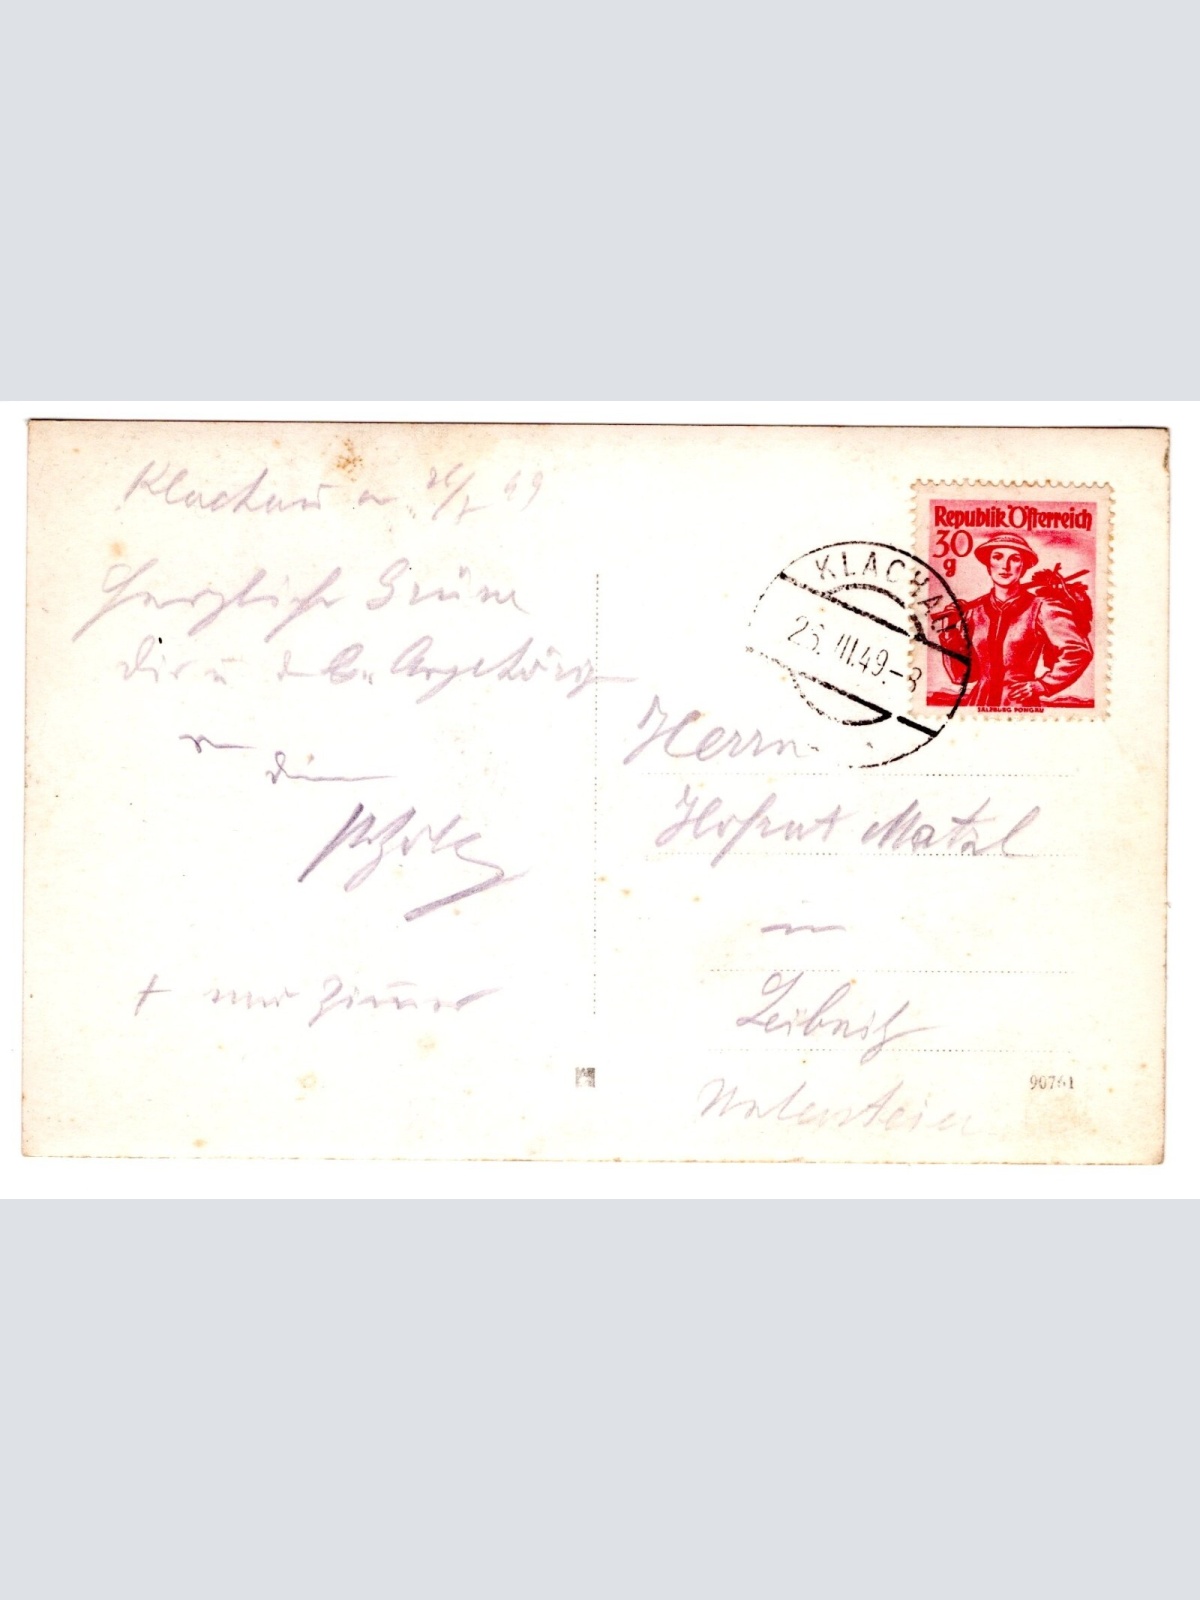 Klachau
Herzliche Grüsse
Dir u. d. l. Angehörig
v.
Dein
+ nur Zimmer
Republik Österreich
30
g
SALZBURG PONGAU
KLACHAU
25. III. 49.-8
Herrn
Hofrat Matzl
in
Leibnitz
Untersteier
90761